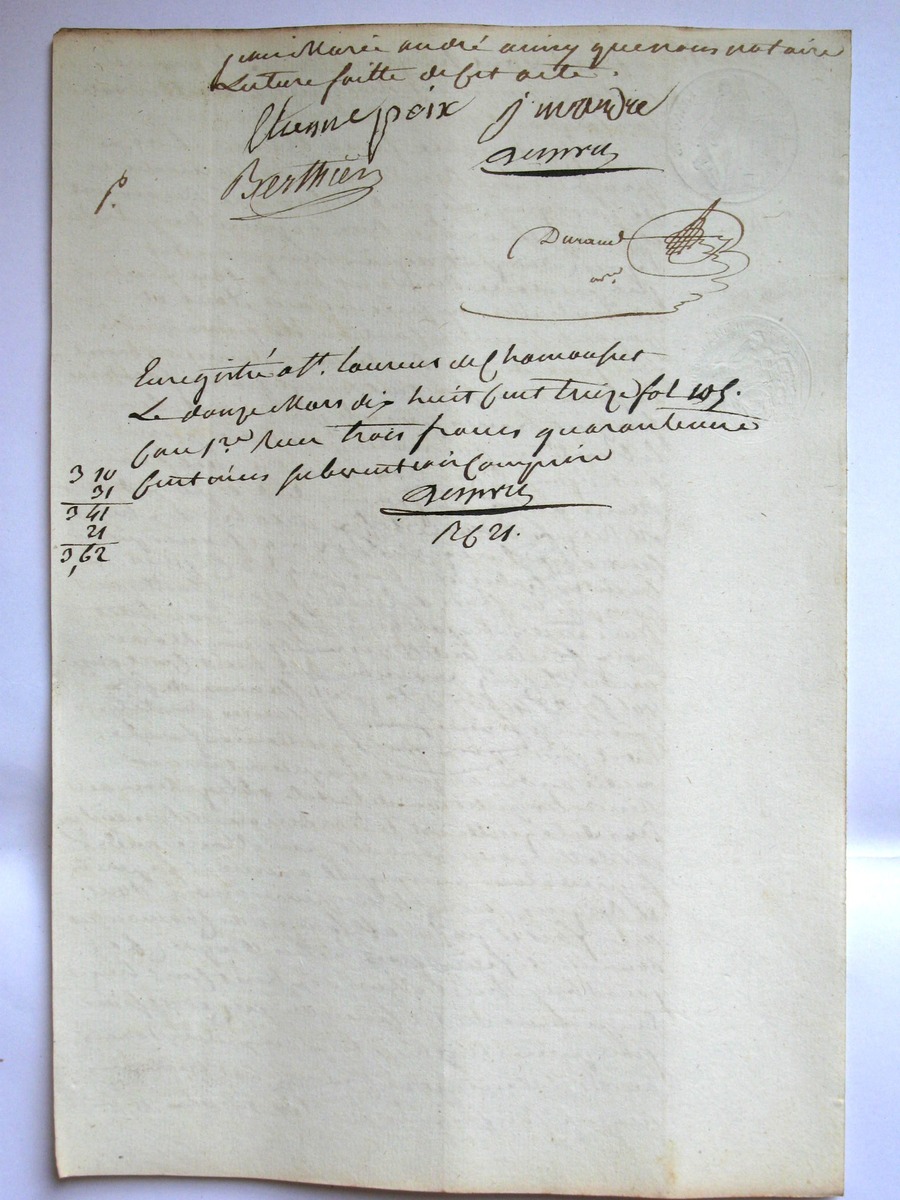 jean Marie andré ainsy que nous notaire
Lecture faitte de cet acte.
Etienne poix j m andre
Berthier
Durand
Enregistré a St. Laurens de Chamousset
Le douze Mars dix huit Cent treize fol 105.
Case 1re Reçu trois francs quarante une
Centimes subvention Comprise
3 10
31
3 41
21
3,62
R 6 21.